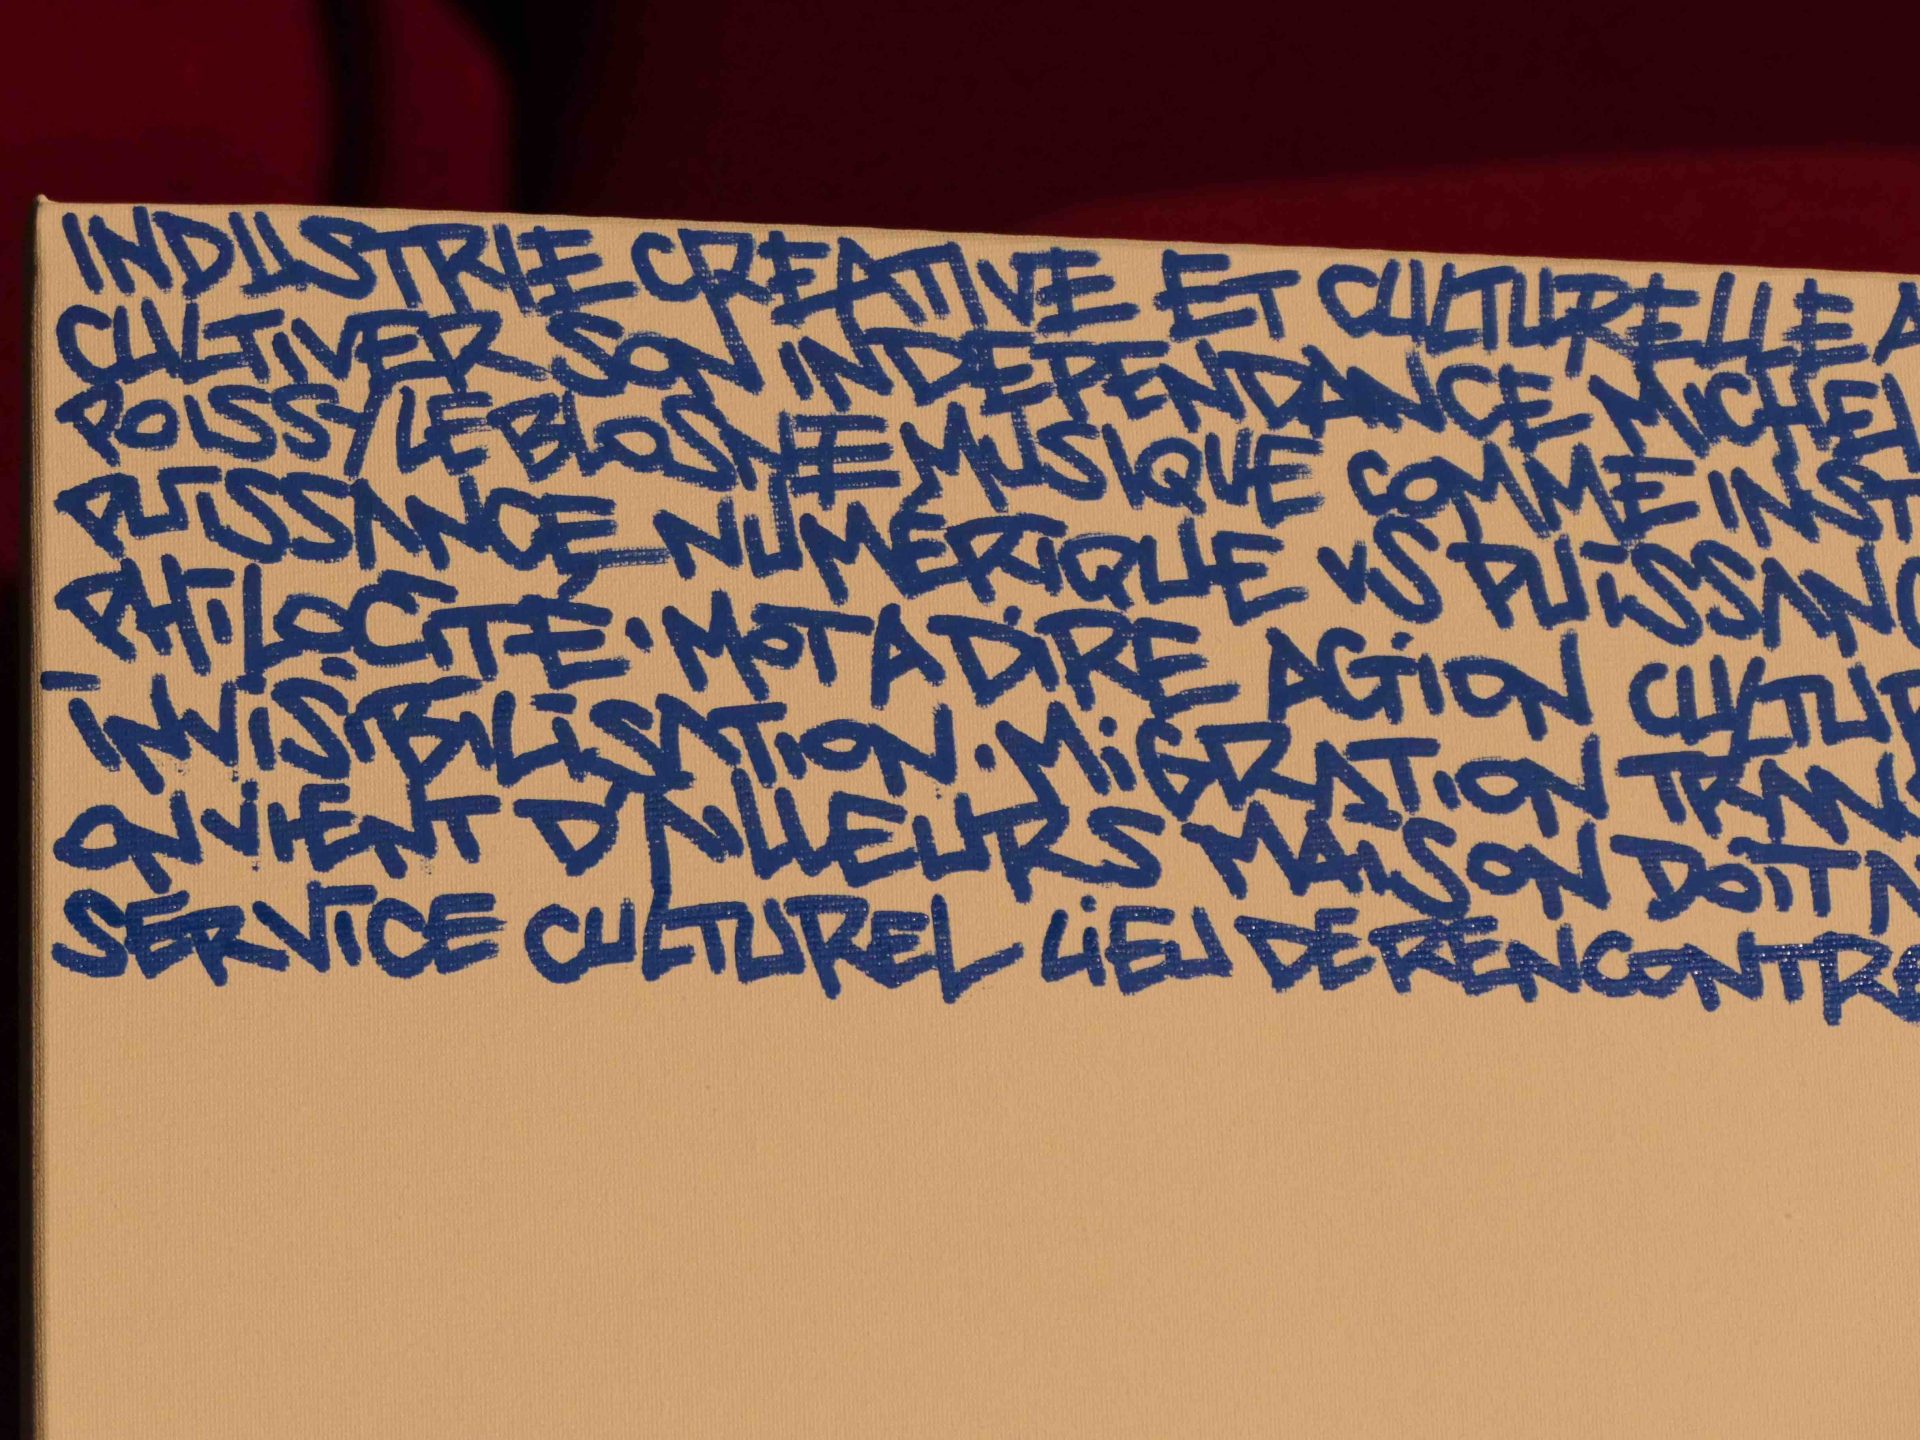 INDUSTRIE CREATIVE ET CULTURELLE A
CULTIVER SON INDEPENDANCE MICHEL
POISSY LE BLOSNE MUSIQUE COMME INST
PUISSANCE NUMÉRIQUE VS PUISSANC
PHILOCITÉ. MOT A DIRE ACTION CULTUR
- INVISIBILISATION. MIGRATION TRANS
ON VIENT D'AILLEURS MAISON DOIT N
SERVICE CULTUREL LIEU DE RENCONTRE